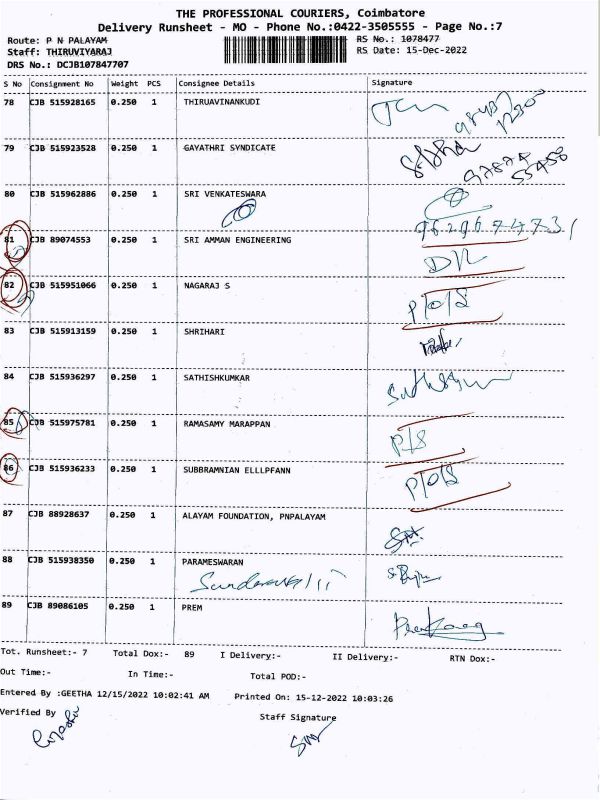 THE PROFESSIONAL COURIERS, Coimbatore
Delivery Runsheet - MO - Phone No.:0422-3505555 - Page No.:7
Route: P N PALAYAM RS No.: 1078477
Staff: THIRUVIYARAJ RS Date: 15-Dec-2022
DRS No.: DCJB107847707
S No Consignment No Weight PCS Consignee Details Signature
78 CJB 515928165 0.250 1 THIRUAVINANKUDI
79 CJB 515923528 0.250 1 GAYATHRI SYNDICATE
80 CJB 515962886 0.250 1 SRI VENKATESWARA
9629674731
81 CJB 89074553 0.250 1 SRI AMMAN ENGINEERING
82 CJB 515951066 0.250 1 NAGARAJ S
P/O/S
83 CJB 515913159 0.250 1 SHRIHARI
84 CJB 515936297 0.250 1 SATHISHKUMKAR
85 CJB 515975781 0.250 1 RAMASAMY MARAPPAN
P/S
86 CJB 515936233 0.250 1 SUBBRAMNIAN ELLLPFANN
P/O/S
87 CJB 88928637 0.250 1 ALAYAM FOUNDATION, PNPALAYAM
88 CJB 515938350 0.250 1 PARAMESWARAN
89 CJB 89086105 0.250 1 PREM
Tot. Runsheet:- 7 Total Dox:- 89 I Delivery:- II Delivery:- RTN Dox:-
Out Time:- In Time:- Total POD:-
Entered By :GEETHA 12/15/2022 10:02:41 AM Printed On: 15-12-2022 10:03:26
Verified By Staff Signature